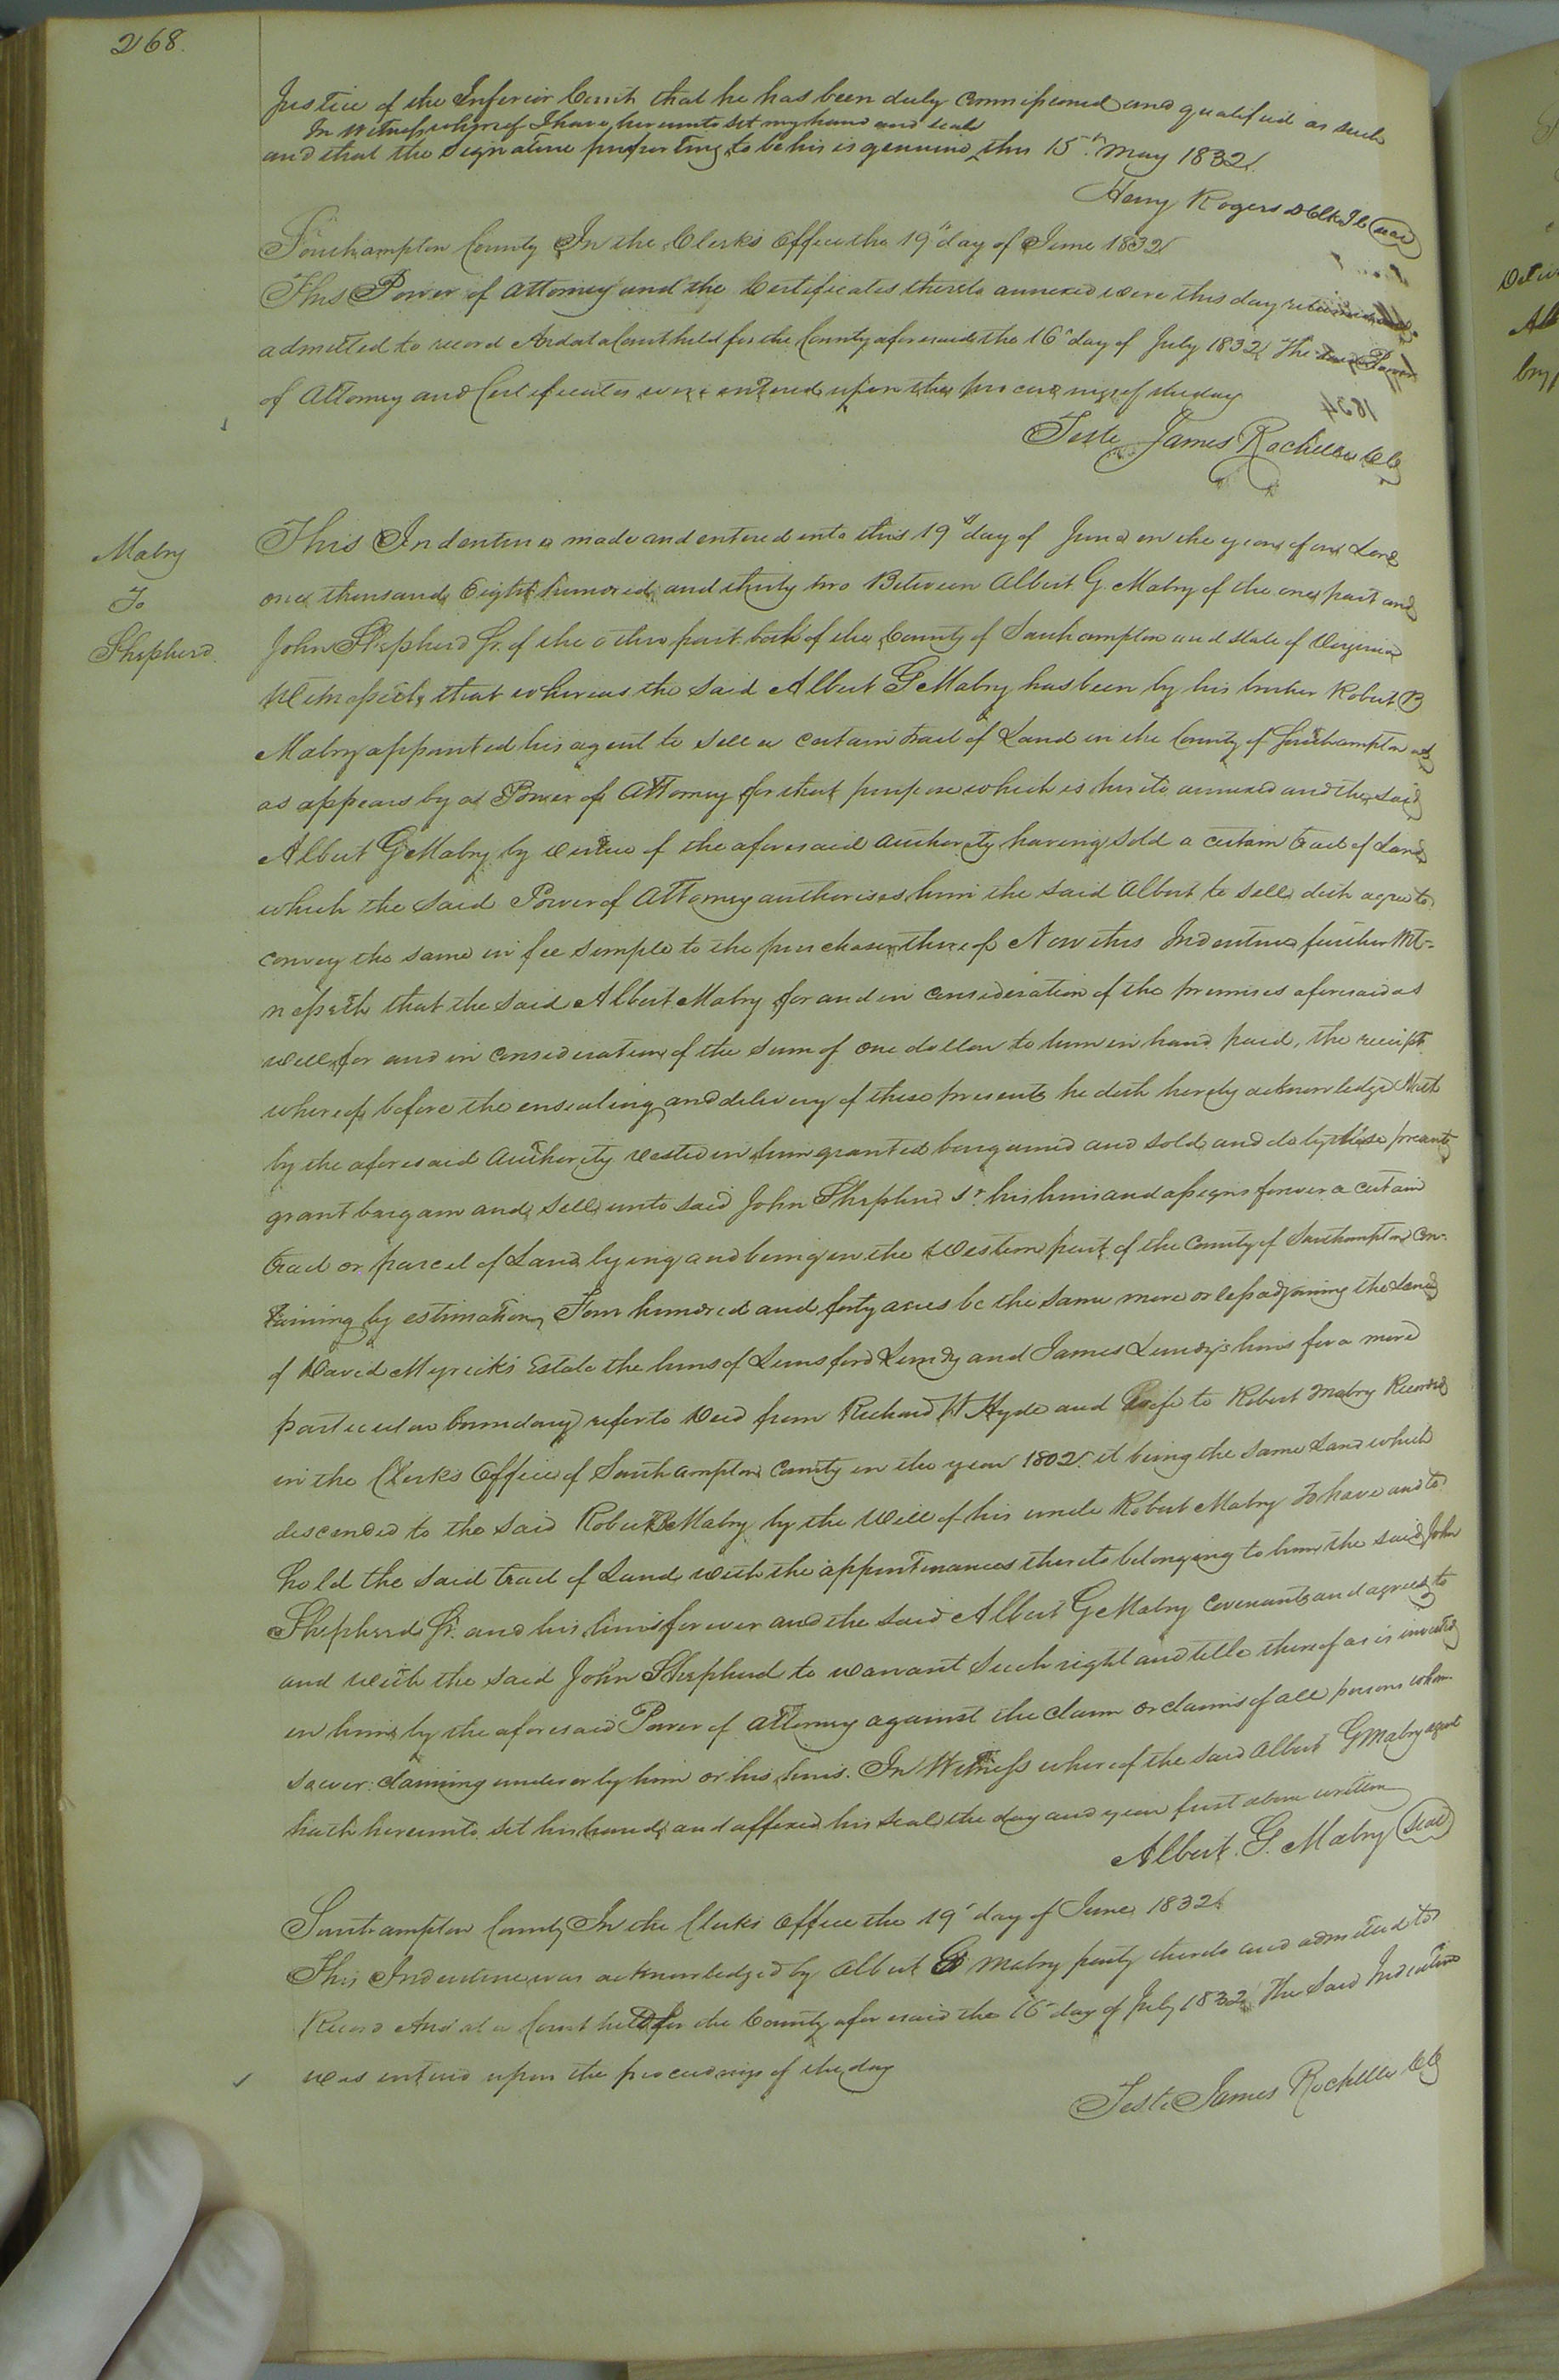 268.
Justice of the Inferior Court that he has been duly commissioned and qualified as such
In Witness whereof I have hereunto set my hand and seal
and that the Signature purporting to be his is genuine this 15th May 1832.
Henry Rogers D Clk I C Seal
Southampton County In the Clerk's Office the 19th day of June 1832
This Power of Attorney and the Certificates thereto annexed were this day returned and
admitted to record And at a Court held for the County aforesaid the 16th day of July 1832 The said Power
of Attorney and Certificates were entered upon the proceedings of the day
Teste James Rochelle CC
Mabry
To
Shepherd.
This Indenture made and entered into this 19th day of June in the year of our Lord
one thousand Eight hundred and thirty two Between Albert G Mabry of the one part and
John Shepherd Sr. of the other part both of the County of Southampton and State of Virginia
Witnesseth, that whereas the said Albert G Mabry has been by his brother Robert B
Mabry appointed his agent to sell a certain tract of Land in the County of Southampton
as appears by a Power of Attorney for that purpose which is hereto annexed and the said
Albert G Mabry by virtue of the aforesaid authority having sold a certain tract of Land
which the said Power of Attorney authorises him the said Albert to sell doth agree to
convey the same in fee simple to the purchaser thereof Now this Indenture further Wit-
nesseth that the said Albert Mabry for and in consideration of the premises aforesaid as
well for and in consideration of the sum of one dollar to him in hand paid, the receipt
whereof before the ensealing and delivery of these presents he doth hereby acknowledge Hath
by the aforesaid Authority vested in him granted bargained and sold and do by these presents
grant bargain and sell unto said John Shepherd Sr. his heirs and assigns forever a certain
tract or parcel of Land lying and being in the Western part of the County of Southampton Con-
taining by estimation Four hundred and forty acres be the same more or less adjoining the Land
of David Myrick's Estate the heirs of Lunsford Lundy and James Lundy's heirs for a more
particular boundary refer to Deed from Richard H Hyde and Wife to Robert Mabry Recorded
in the Clerk's Office of Southampton County in the year 1802. it being the same Land which
descended to the said Robert B Mabry by the Will of his uncle Robert Mabry To have and to
hold the said tract of Land with the appurtenances thereto belonging to him the said John
Shepherd Sr. and his heirs forever and the said Albert G Mabry Covenants and agrees to
and with the said John Shepherd to warrant such right and title thereof as is invested
in him by the aforesaid Power of attorney against the claim or claims of all persons whom-
soever claiming under or by him or his heirs. In Witness whereof the said Albert G Mabry agent
hath hereunto set his hand and affixed his Seal the day and year first above written
Albert. G. Mabry Seal
Southampton County In the Clerks Office the 19th day of June 1832
This Indenture was acknowledged by Albert G Mabry party thereto and admitted to
Record And at a Court held for the County aforesaid the 16th day of July 1832 The Said Indenture
was entered upon the proceedings of the day
Teste James Rochelle CC